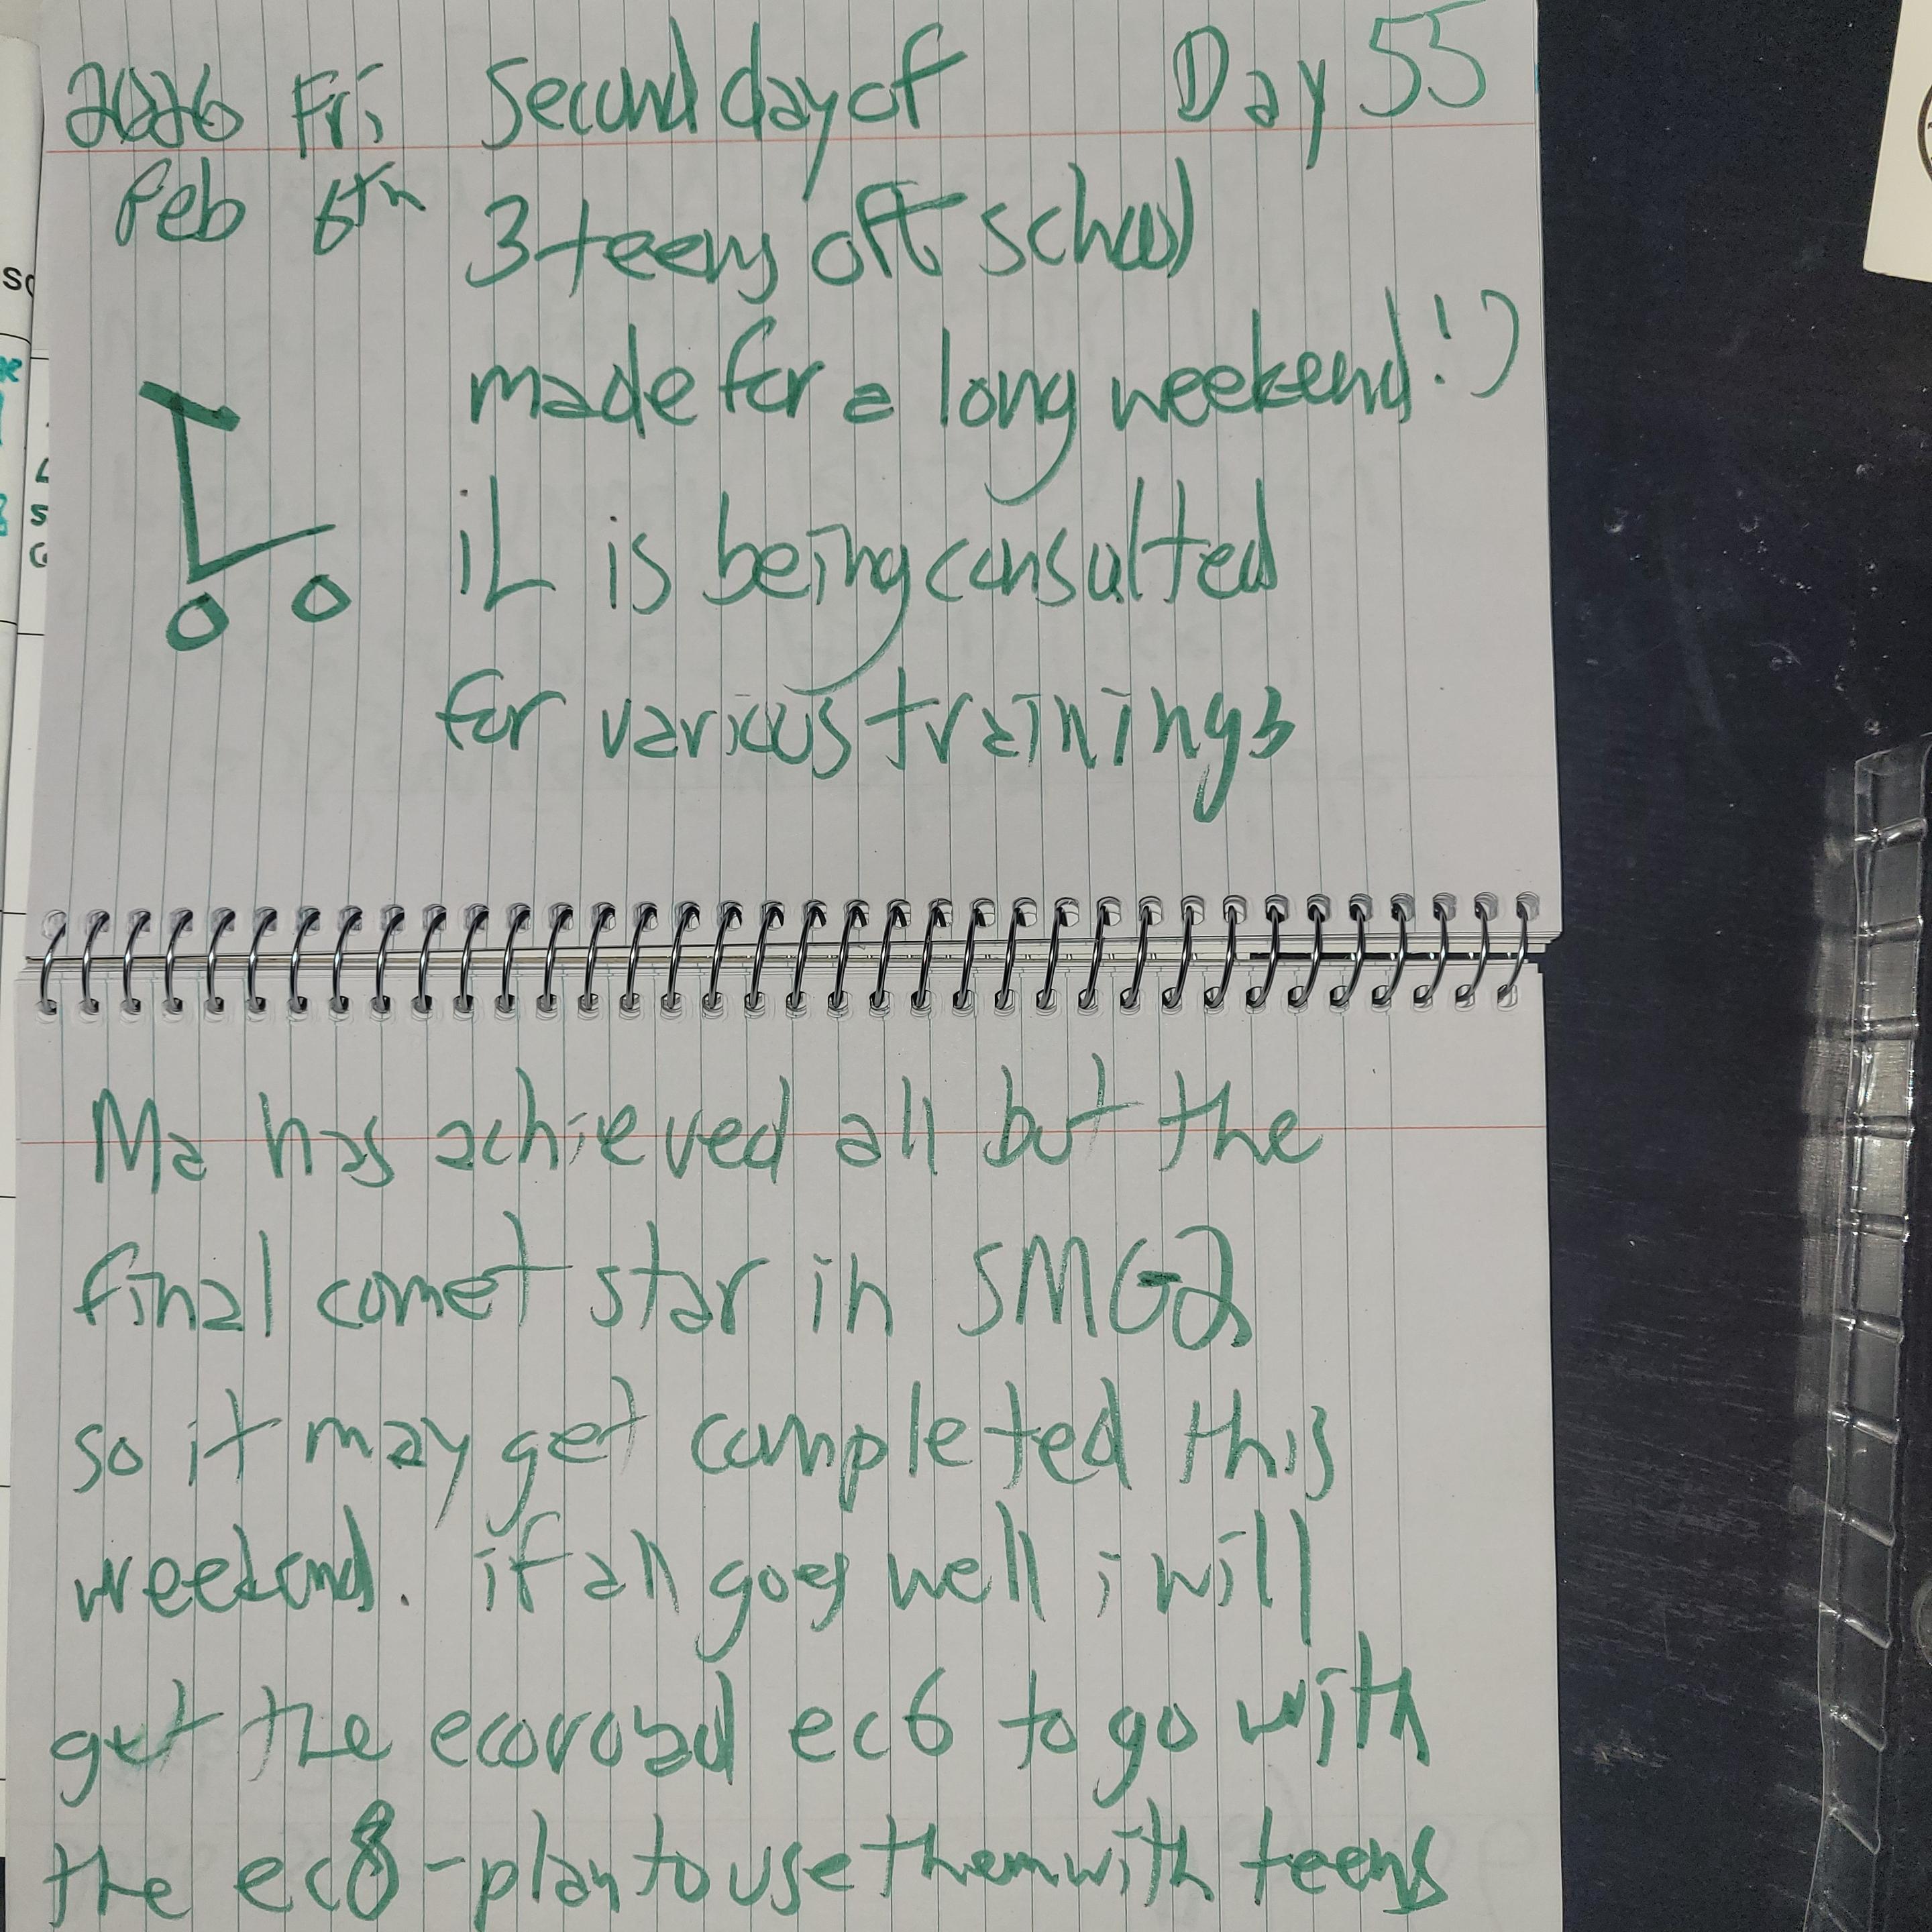 2026 Fri Second day of Day 55
Feb 6th 3 teens off school
made for a long weekend!)
iL is being consulted
for various trainings
Ma has achieved all but the
final comet star in SMG2
so it may get completed this
weekend. if all goes well i will
get the ecoroad ec6 to go with
the ec8 - plan to use them with teens